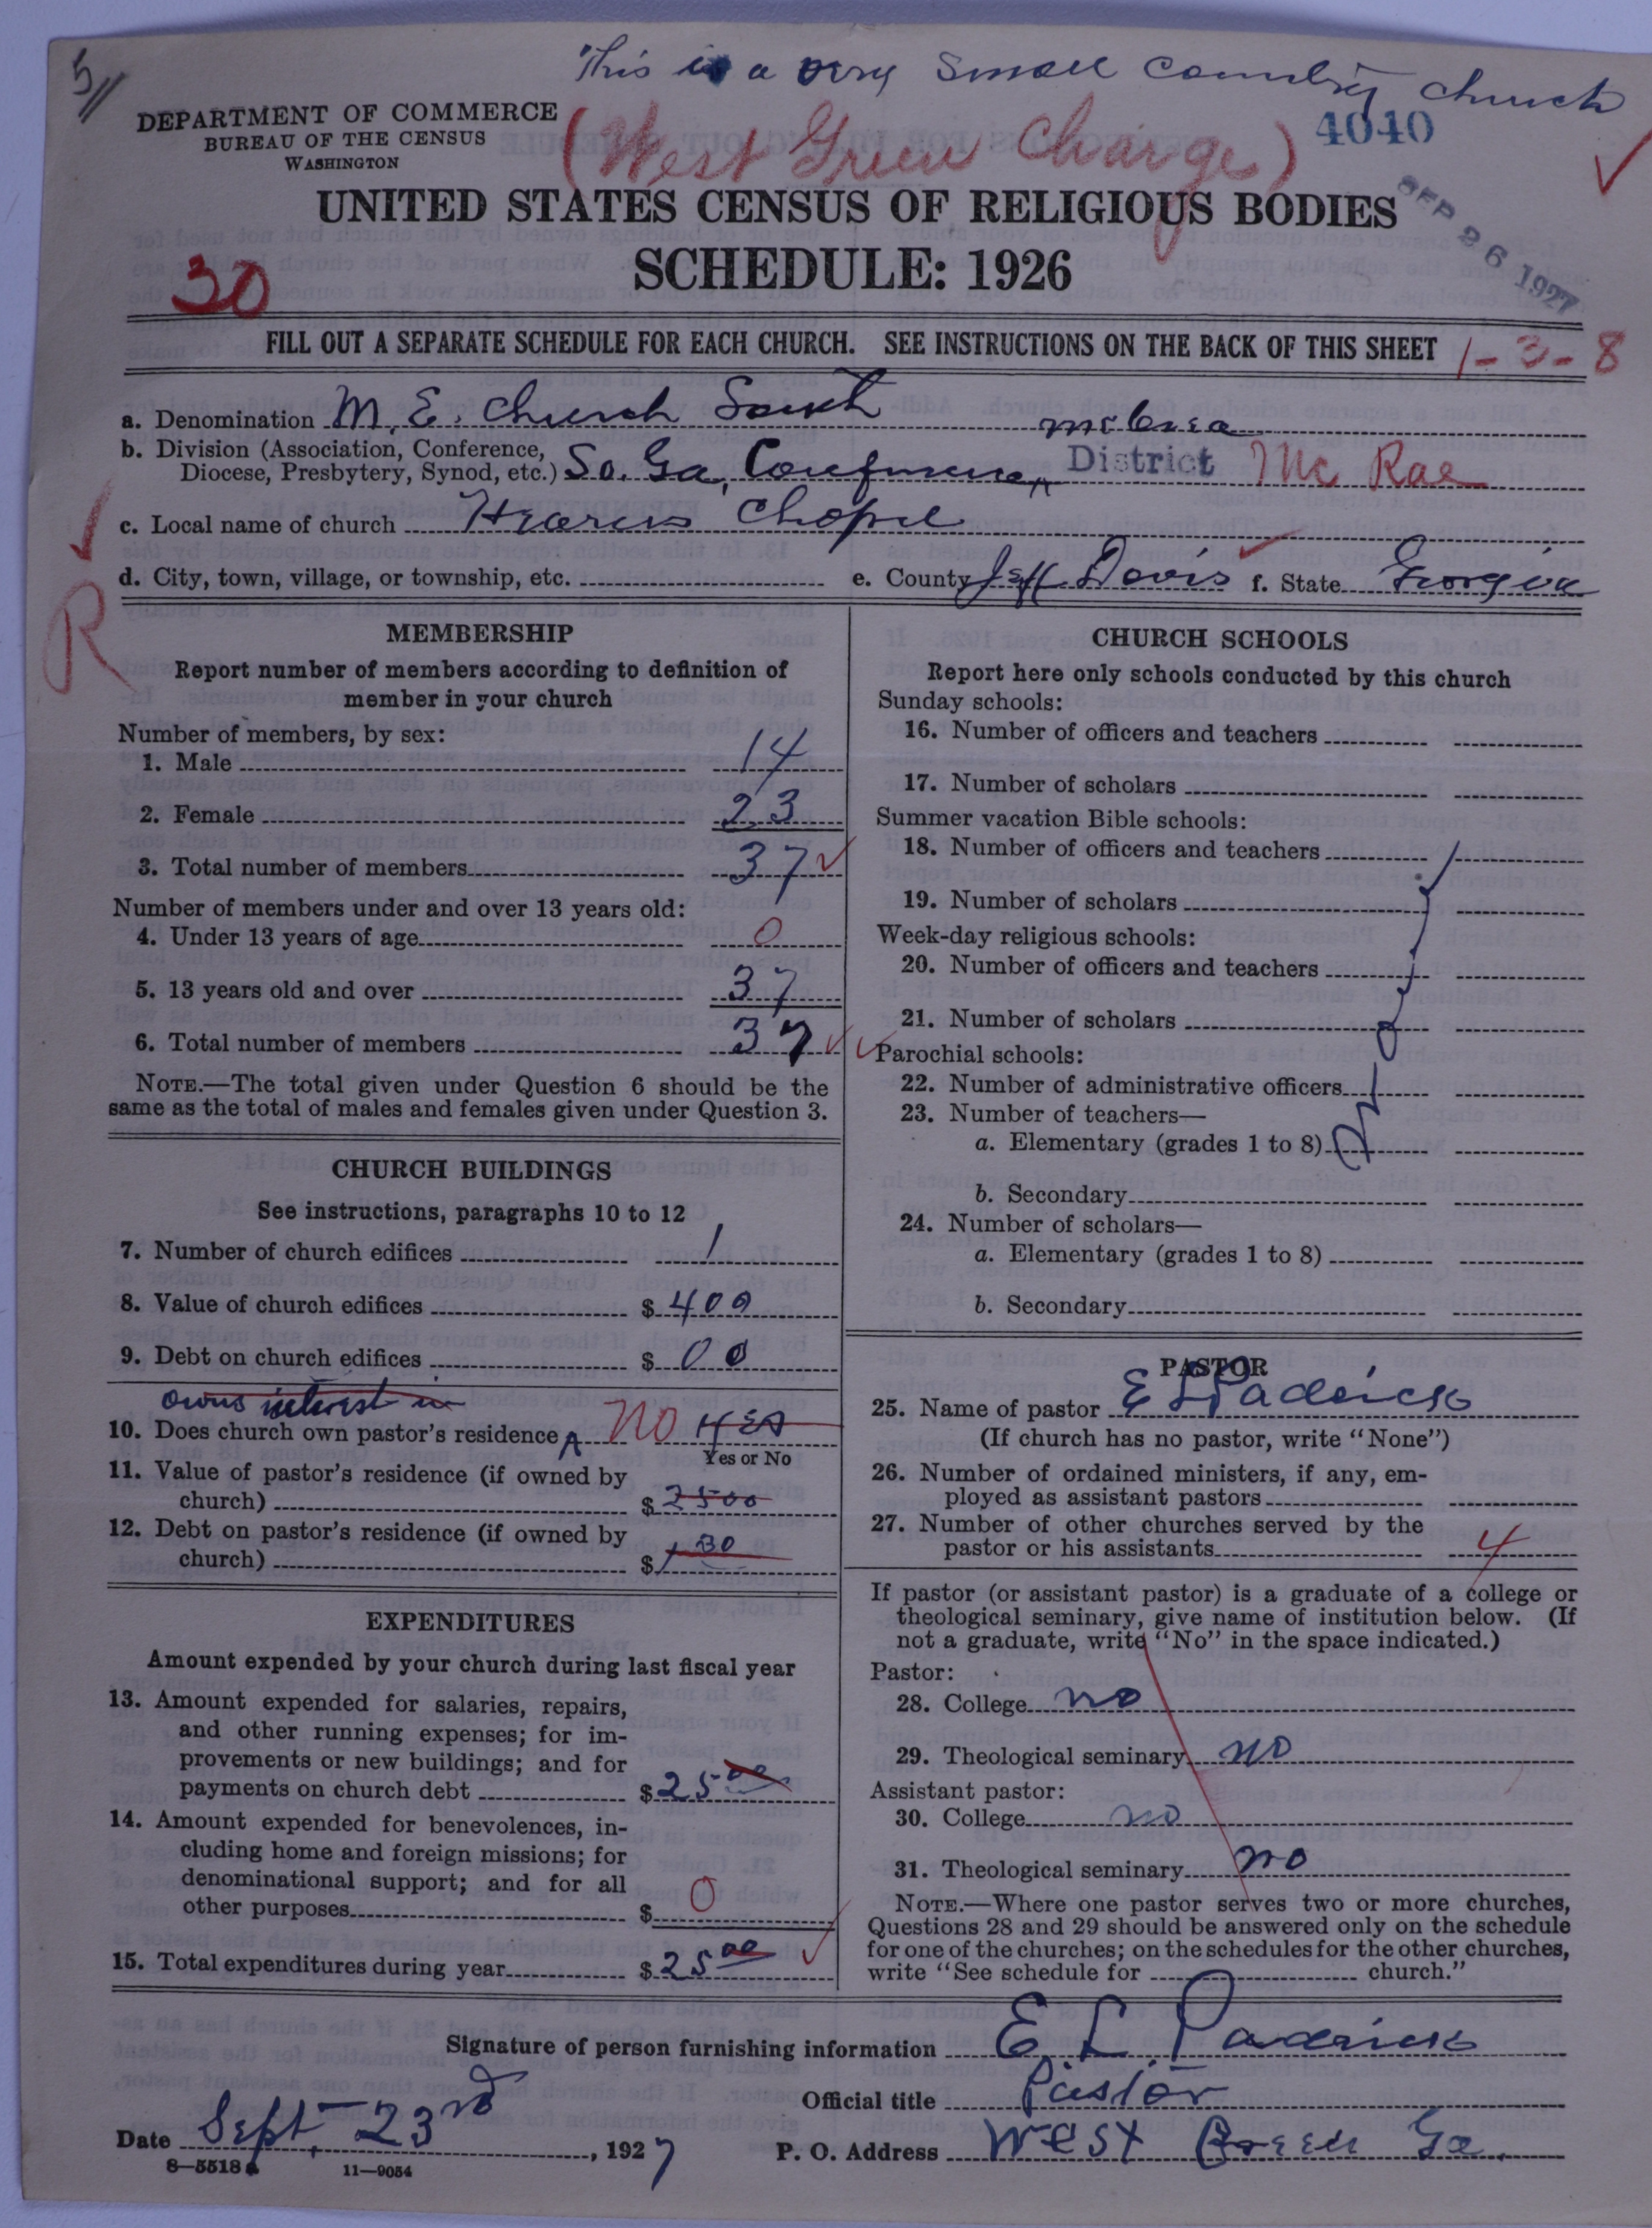 5//
This is a very small country church
DEPARTMENT OF COMMERCE
BUREAU OF THE CENSUS
WASHINGTON
(West Green Charge)
4040
UNITED STATES CENSUS OF RELIGIOUS BODIES
SEP 26 1927
SCHEDULE: 1926
30
FILL OUT A SEPARATE SCHEDULE FOR EACH CHURCH. SEE INSTRUCTIONS ON THE BACK OF THIS SHEET
1-3-8
a. Denomination M. E. Church South
b. Division (Association, Conference, Diocese, Presbytery, Synod, etc.) So. Ga. Conference District Mc Rae
c. Local name of church Chapel
d. City, town, village, or township, etc. e. County Jeff Davis f. State Georgia
R
MEMBERSHIP
Report number of members according to definition of
member in your church
Number of members, by sex:
1. Male 14
2. Female 23
3. Total number of members 37
Number of members under and over 13 years old:
4. Under 13 years of age 0
5. 13 years old and over 37
6. Total number of members 37
NOTE.—The total given under Question 6 should be the
same as the total of males and females given under Question 3.
CHURCH BUILDINGS
See instructions, paragraphs 10 to 12
7. Number of church edifices 1
8. Value of church edifices $ 400
9. Debt on church edifices $ 00
owns interest in
10. Does church own pastor's residence No Yes
Yes or No
11. Value of pastor's residence (if owned by
church) $ 2500
12. Debt on pastor's residence (if owned by
church) $ 130
EXPENDITURES
Amount expended by your church during last fiscal year
13. Amount expended for salaries, repairs,
and other running expenses; for im-
provements or new buildings; and for
payments on church debt $ 25 00
14. Amount expended for benevolences, in-
cluding home and foreign missions; for
denominational support; and for all
other purposes $ 0
15. Total expenditures during year $ 25 00
CHURCH SCHOOLS
Report here only schools conducted by this church
Sunday schools:
16. Number of officers and teachers
17. Number of scholars
Summer vacation Bible schools:
18. Number of officers and teachers
19. Number of scholars
Week-day religious schools:
20. Number of officers and teachers
21. Number of scholars
Parochial schools:
22. Number of administrative officers
23. Number of teachers—
a. Elementary (grades 1 to 8)
b. Secondary
24. Number of scholars—
a. Elementary (grades 1 to 8)
b. Secondary
PASTOR
25. Name of pastor E L Padrick
(If church has no pastor, write "None")
26. Number of ordained ministers, if any, em-
ployed as assistant pastors
27. Number of other churches served by the
pastor or his assistants 4
If pastor (or assistant pastor) is a graduate of a college or
theological seminary, give name of institution below. (If
not a graduate, write "No" in the space indicated.)
Pastor:
28. College no
29. Theological seminary no
Assistant pastor:
30. College no
31. Theological seminary no
NOTE.—Where one pastor serves two or more churches,
Questions 28 and 29 should be answered only on the schedule
for one of the churches; on the schedules for the other churches,
write "See schedule for church."
Signature of person furnishing information E. L. Padrick
Official title Pastor
Date Sept. 23rd, 1927 P. O. Address West Green Ga.
8—5518a 11—9054